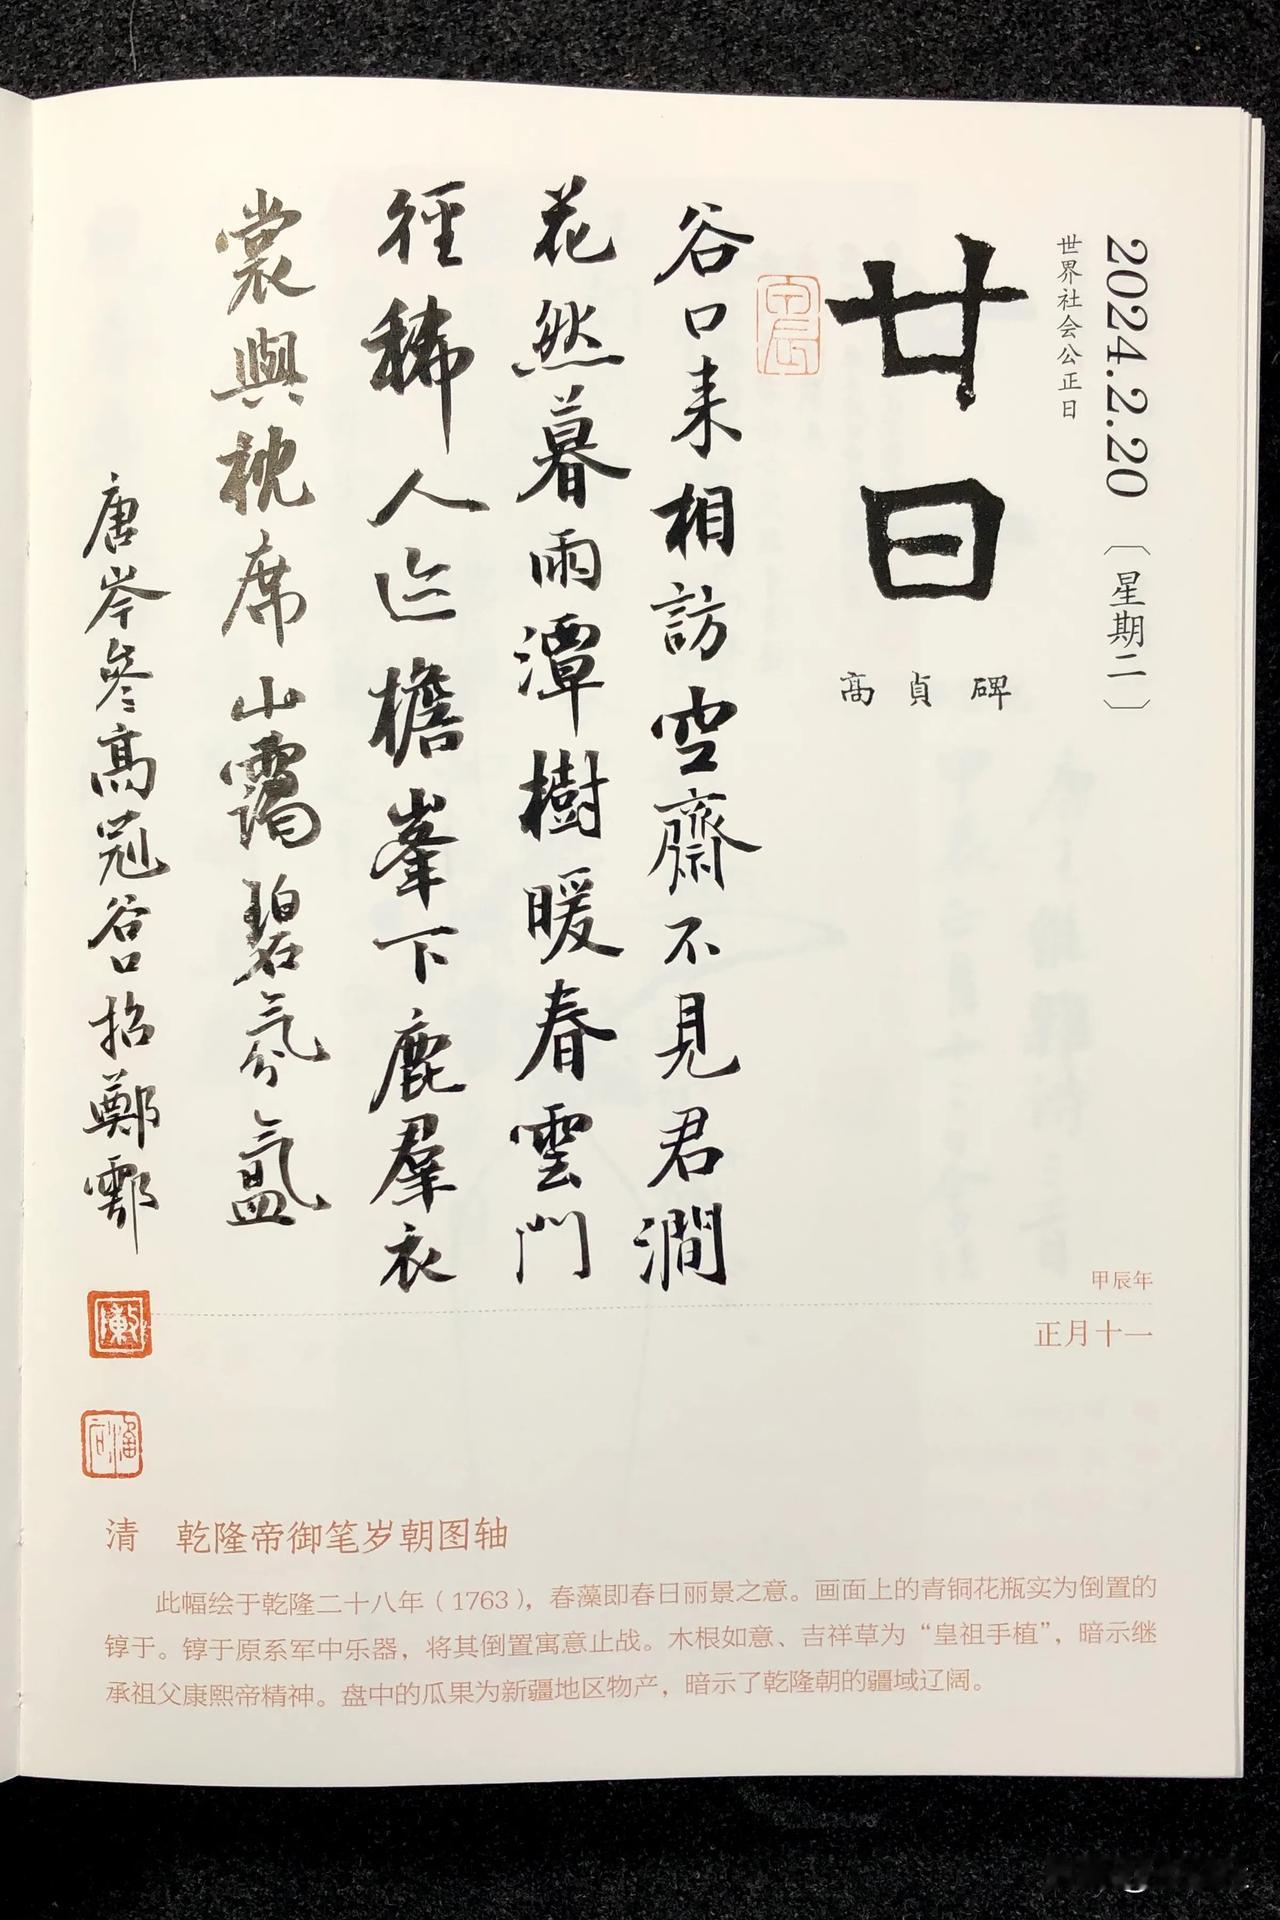 2024.2.20〔星期二〕
世界社会公正日
廿日
高貞碑
谷口来相訪空齋不見君澗
花然暮雨潭樹暖春雲門
徑稀人迹檐峯下鹿羣衣
裳與枕席山靄碧氛氲
唐岑參高冠谷口招鄭鄠
甲辰年
正月十一
清 乾隆帝御笔岁朝图轴
此幅绘于乾隆二十八年（1763），春藻即春日丽景之意。画面上的青铜花瓶实为倒置的
錞于。錞于原系军中乐器，将其倒置寓意止战。木根如意、吉祥草为“皇祖手植”，暗示继
承祖父康熙帝精神。盘中的瓜果为新疆地区物产，暗示了乾隆朝的疆域辽阔。